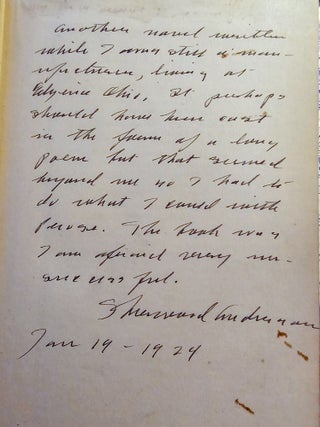 Another novel written
while I was still a man-
ufacturer, living at
Elyria Ohio. It perhaps
should have been cast
in the form of a long
poem but that seemed
beyond me so I had to
do what I could with
prose. The book was
I am afraid very un-
successful.
Sherwood Anderson
Jan 19 - 1924